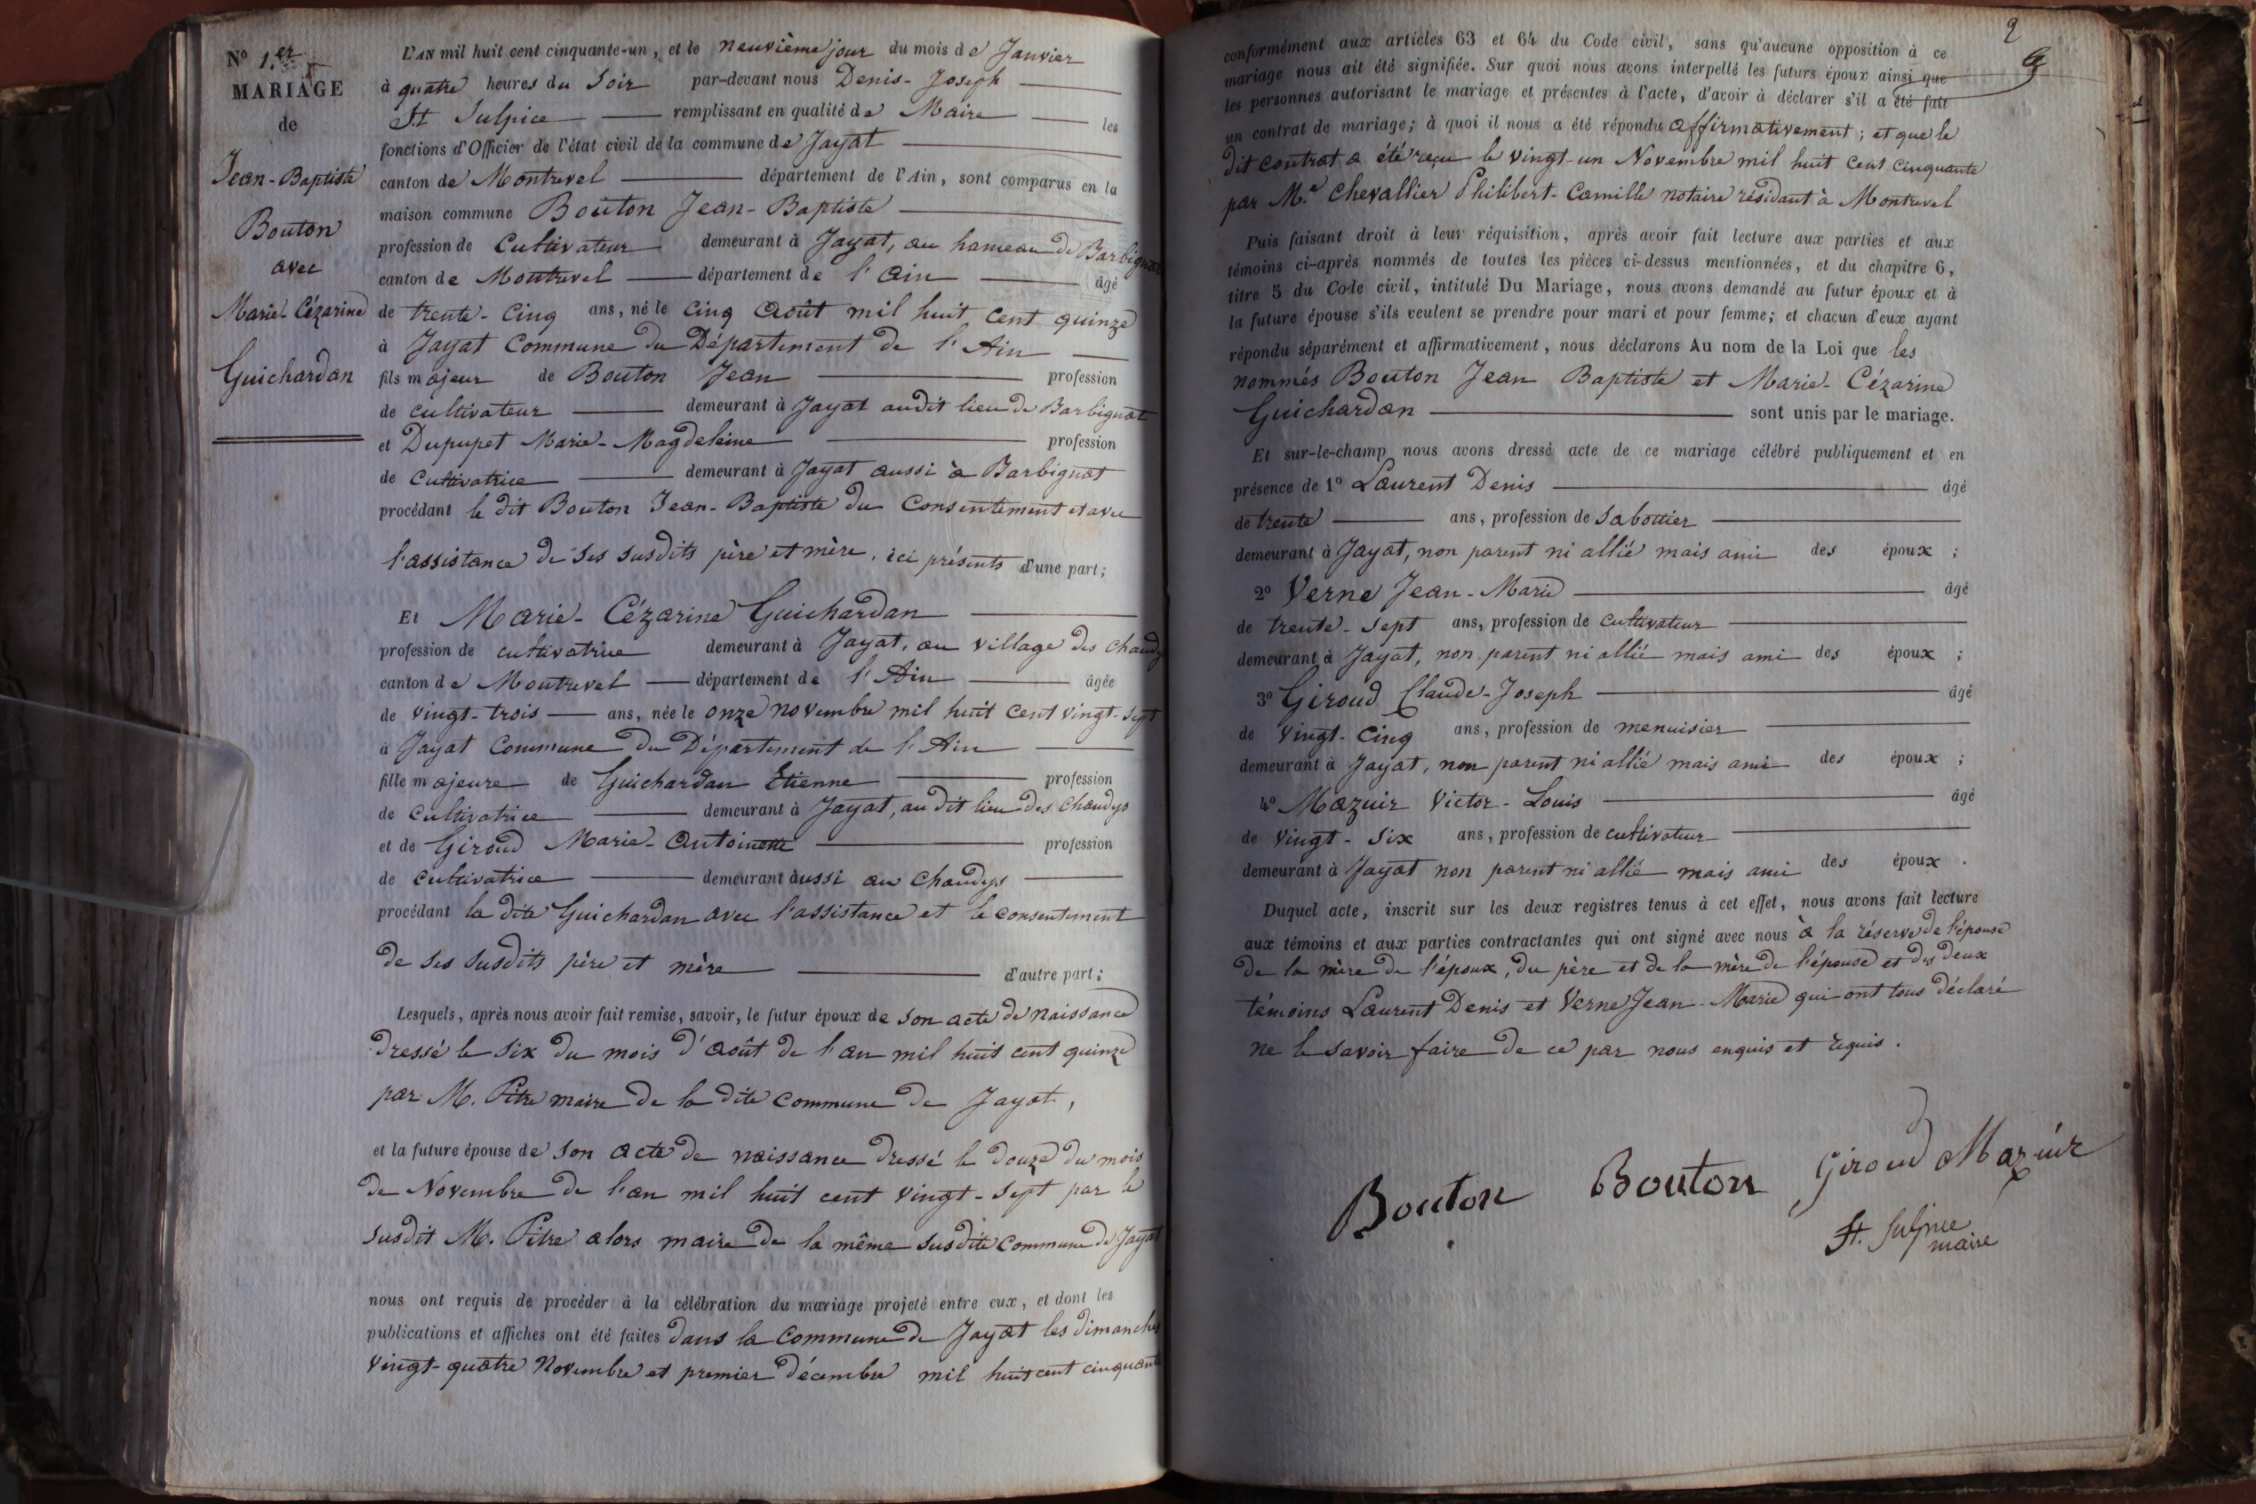 N° 1.er
MARIAGE
de
Jean-Baptiste
Bouton
avec
Marie-Cézarine
Guichardan
L'AN mil huit cent cinquante-un, et le neuvième jour du mois de Janvier
à quatre heures du Soir par-devant nous Denis-Joseph
St Sulpice remplissant en qualité de Maire les
fonctions d'Officier de l'état civil de la commune de Jayat
canton de Montrevel département de l'Ain, sont comparus en la
maison commune Bouton Jean-Baptiste
profession de Cultivateur demeurant à Jayat, au hameau de Barbignat
canton de Montrevel département de l'Ain âgé
de trente-cinq ans, né le cinq Août mil huit cent quinze
à Jayat Commune du Département de l'Ain
fils majeur de Bouton Jean profession
de cultivateur demeurant à Jayat audit lieu de Barbignat
et Dupupet Marie-Magdeleine profession
de Cultivatrice demeurant à Jayat aussi à Barbignat
procédant le dit Bouton Jean-Baptiste du Consentement et avec
l'assistance de ses susdits père et mère, ici présents d'une part;
Et Marie-Cézarine Guichardan
profession de cultivatrice demeurant à Jayat, au village des Chaudys
canton de Montrevel département de l'Ain âgée
de vingt-trois ans, née le onze novembre mil huit cent vingt-sept
à Jayat Commune du Département de l'Ain
fille majeure de Guichardan Etienne profession
de cultivatrice demeurant à Jayat, au dit lieu des Chaudys
et de Giroud Marie-Antoinette profession
de cultivatrice demeurant aussi au Chaudys
procédant la dite Guichardan avec l'assistance et le consentement
de ses susdits père et mère d'autre part;
Lesquels, après nous avoir fait remise, savoir, le futur époux de son acte de naissance
dressé le six du mois d'août de l'an mil huit cent quinze
par M. Pitre maire de la dite commune de Jayat,
et la future épouse de son acte de naissance dressé le douze du mois
de Novembre de l'an mil huit cent vingt-sept par le
susdit M. Pitre alors maire de la même susdite Commune de Jayat
nous ont requis de procéder à la célébration du mariage projeté entre eux, et dont les
publications et affiches ont été faites dans la Commune de Jayat les dimanches
vingt-quatre Novembre et premier décembre mil huit cent cinquante
2
conformément aux articles 63 et 64 du Code civil, sans qu'aucune opposition à ce
mariage nous ait été signifiée. Sur quoi nous avons interpellé les futurs époux ainsi que
les personnes autorisant le mariage et présentes à l'acte, d'avoir à déclarer s'il a été fait
un contrat de mariage; à quoi il nous a été répondu affirmativement; et que le
dit contrat a été reçu le vingt-un Novembre mil huit cent cinquante
par M.e Chevallier Philibert-Camille notaire résidant à Montrevel
Puis faisant droit à leur réquisition, après avoir fait lecture aux parties et aux
témoins ci-après nommés de toutes les pièces ci-dessus mentionnées, et du chapitre 6,
titre 5 du Code civil, intitulé Du Mariage, nous avons demandé au futur époux et à
la future épouse s'ils veulent se prendre pour mari et pour femme; et chacun d'eux ayant
répondu séparément et affirmativement, nous déclarons Au nom de la Loi que les
nommés Bouton Jean Baptiste et Marie-Cézarine
Guichardan sont unis par le mariage.
Et sur-le-champ nous avons dressé acte de ce mariage célébré publiquement et en
présence de 1° Laurent Denis âgé
de trente ans, profession de sabottier
demeurant à Jayat, non parent ni allié mais ami des époux;
2° Verne Jean-Marie âgé
de trente-sept ans, profession de cultivateur
demeurant à Jayat, non parent ni allié mais ami des époux;
3° Giroud Claude-Joseph âgé
de vingt-cinq ans, profession de menuisier
demeurant à Jayat, non parent ni allié mais ami des époux;
4° Mazuir Victor-Louis âgé
de vingt-six ans, profession de cultivateur
demeurant à Jayat non parent ni allié mais ami des époux.
Duquel acte, inscrit sur les deux registres tenus à cet effet, nous avons fait lecture
aux témoins et aux parties contractantes qui ont signé avec nous à la réserve de l'épouse
de la mère de l'époux, du père et de la mère de l'épouse et des deux
témoins Laurent Denis et Verne Jean-Marie qui ont tous déclaré
ne le savoir faire de ce par nous enquis et requis.
Bouton Bouton Giroud Mazuir
St. Sulpice
maire